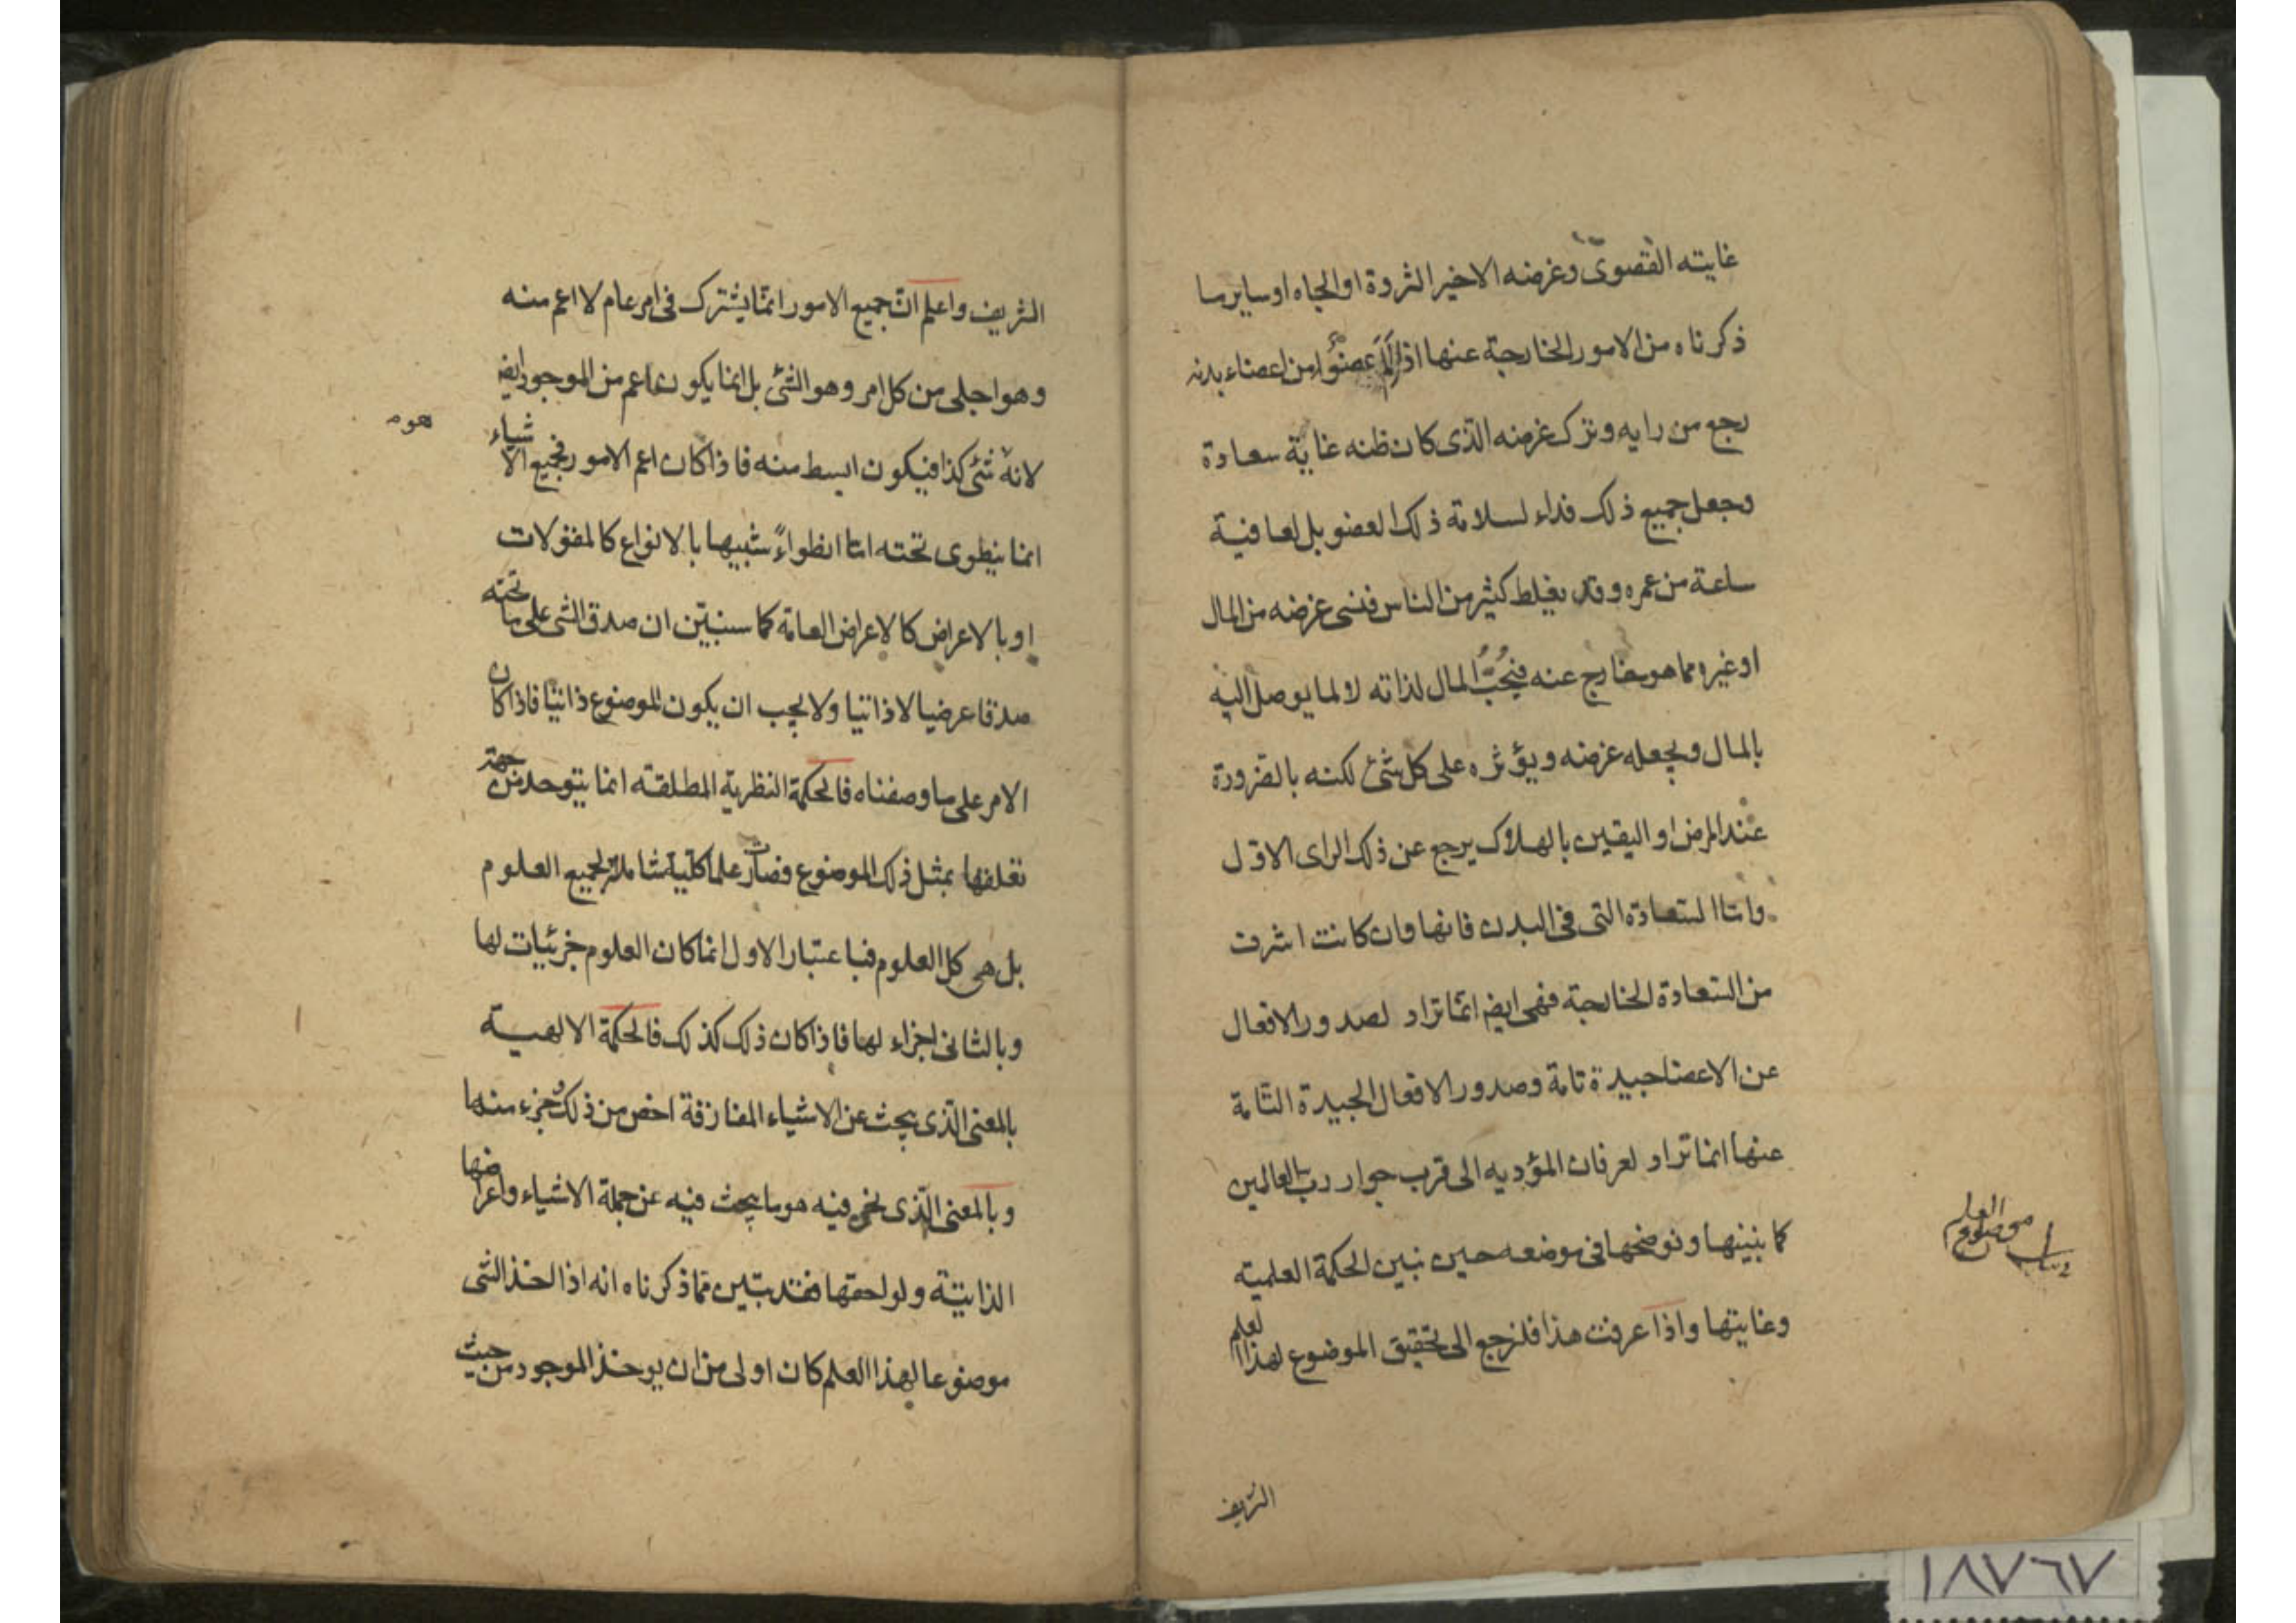 غايته القصوى وغرضه الاخير الثروة او الجاه او ساير ما
ذكرناه من الامور الخارجة عنها اذا الم عضوا من اعضاء بدنه
رجع من رايه وترك غرضه الذى كان ظنه غاية سعادة
وجعل جميع ذلك فداء لسلامة ذلك العضو بل لعافية
ساعة من عمره وقد يغلط كثير من الناس فنسى غرضه من المال
او غيره مما هو خارج عنه فيحب المال لذاته لا لما يوصل اليه
بالمال ويجعله غرضه ويؤثره على كل شئ لكنه بالضرورة
عند المرض او اليقين بالهلاك يرجع عن ذلك الراى الاول
واما السعادة التى فى البدن فانها وان كانت اشرف
من السعادة الخارجة فهى ايض انما تراد لصدور الافعال
عن الاعضا جيدة تامة وصدور الافعال الجيدة التامة
عنها انما تراد لعرفان المؤديه الى قرب جوار رب العالمين
كما نبينها ونوضحها فى موضعه حين نبين الحكمة العلمية
وغايتها واذا عرفت هذا فلنرجع الى تحقيق الموضوع لهذا العلم
موضوع العلم
الشريف
الشريف واعلم ان جميع الامور انما يشترك فى امر عام لا اعم منه
وهو اجلى من كل امر وهو الشئ بل انما يكون اعم من الموجود ايض
لانه شئ كذا فيكون ابسط منه فاذا كان اعم الامور فجميع الاشياء
انما ينطوى تحته اما انطواءً شبيها بالانواع كالمقولات
او بالاعراض كالاعراض العامة كما سنبين ان صدق الشى على ما تحته
صدقا عرضيا لا ذاتيا ولا يجب ان يكون الموضوع ذاتيا فاذا كان
الامر على ما وصفناه فالحكمة النظرية المطلقة انما يتوحد من جهة
تعلقها بمثل ذلك الموضوع فصارت علما كلية شاملة لجميع العلوم
بل هى كل العلوم فباعتبار الاول انما كان العلوم جزئيات لها
وبالثانى اجزاء لها فاذا كان ذلك كذلك فالحكمة الالهية
بالمعنى الذى يبحث عن الاشياء المفارقة اخص من ذلك وجزء منها
وبالمعنى الذى نحن فيه هو ما يبحث فيه عن جملة الاشياء واعراضها
الذاتية ولواحقها فقد تبين مما ذكرناه انه اذا اخذ الشى
موضوعا لهذا العلم كان اولى من ان يوخذ الموجود من حيث